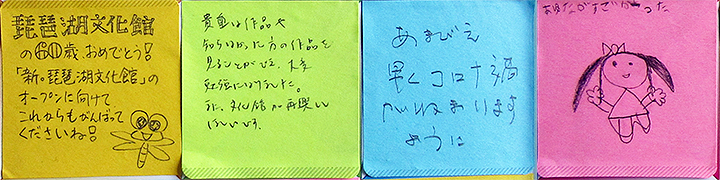 琵琶湖文化館
の60歳、おめでとう!
「新・琵琶湖文化館」の
オープンに向けて
これからもがんばって
くださいね!
貴重な作品や
知らなかった方の作品を
見ることができ、大変
勉強になりました。
又、文化館が再興して
ほしいです。
あまびえ
早くコロナ禍
がおわります
ように